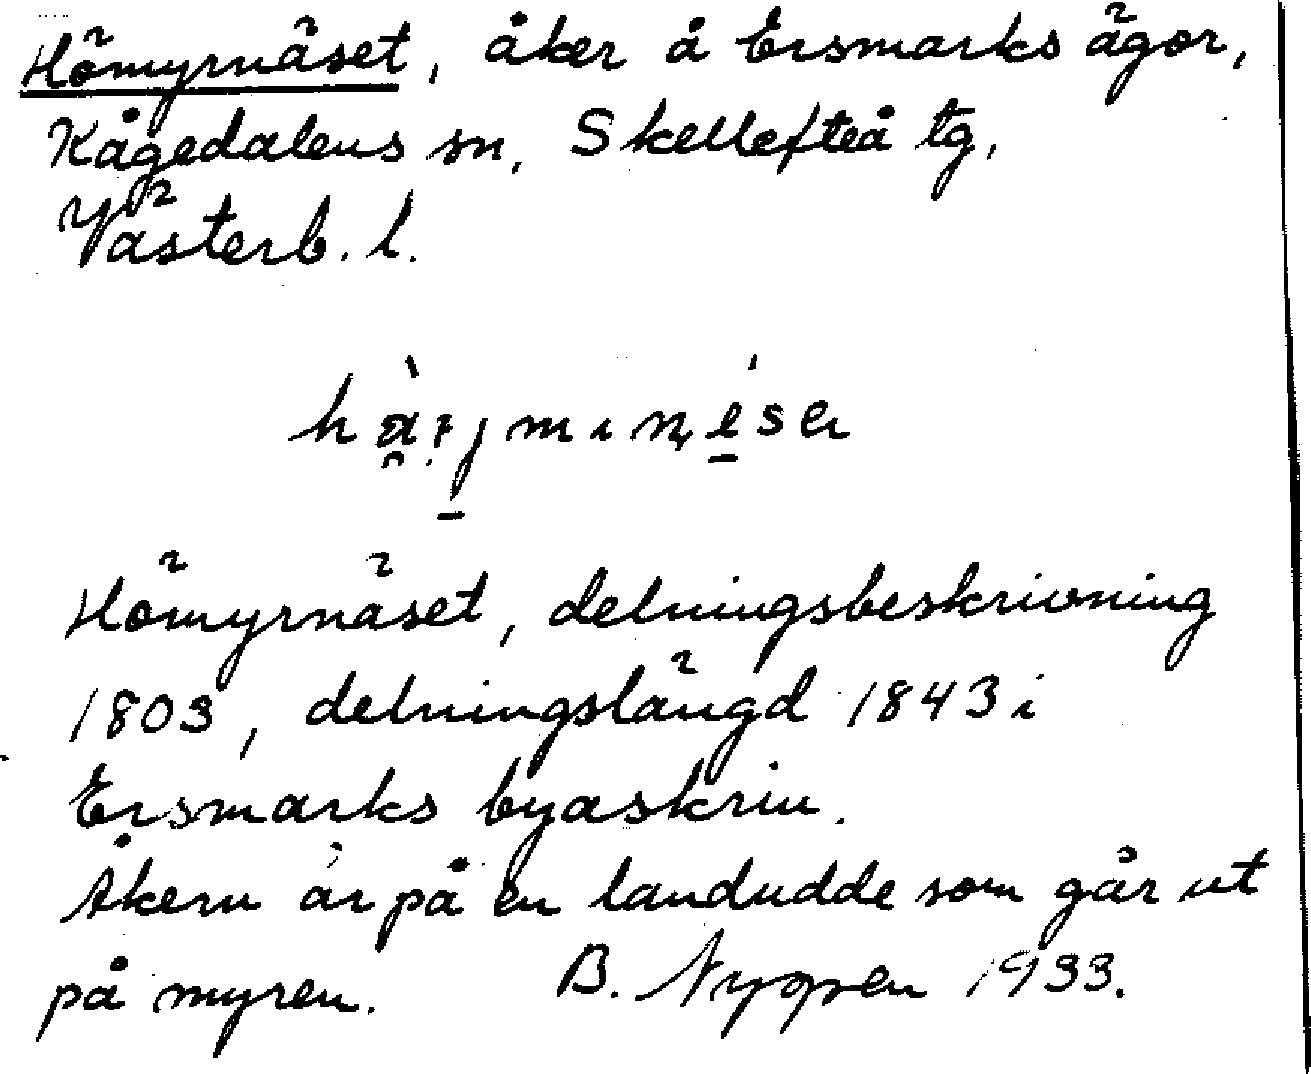 Hömyrnäset, åker å Ersmarks ägor,
Kågedalens sn, Skellefteå tg,
Västerb. l.
Hömyrnäset, delningsbeskrivning
1803, delningslängd 1843 i
Ersmarks byaskrin.
Åkern är på en landudde som går ut
på myren. B. Nygren 1933.